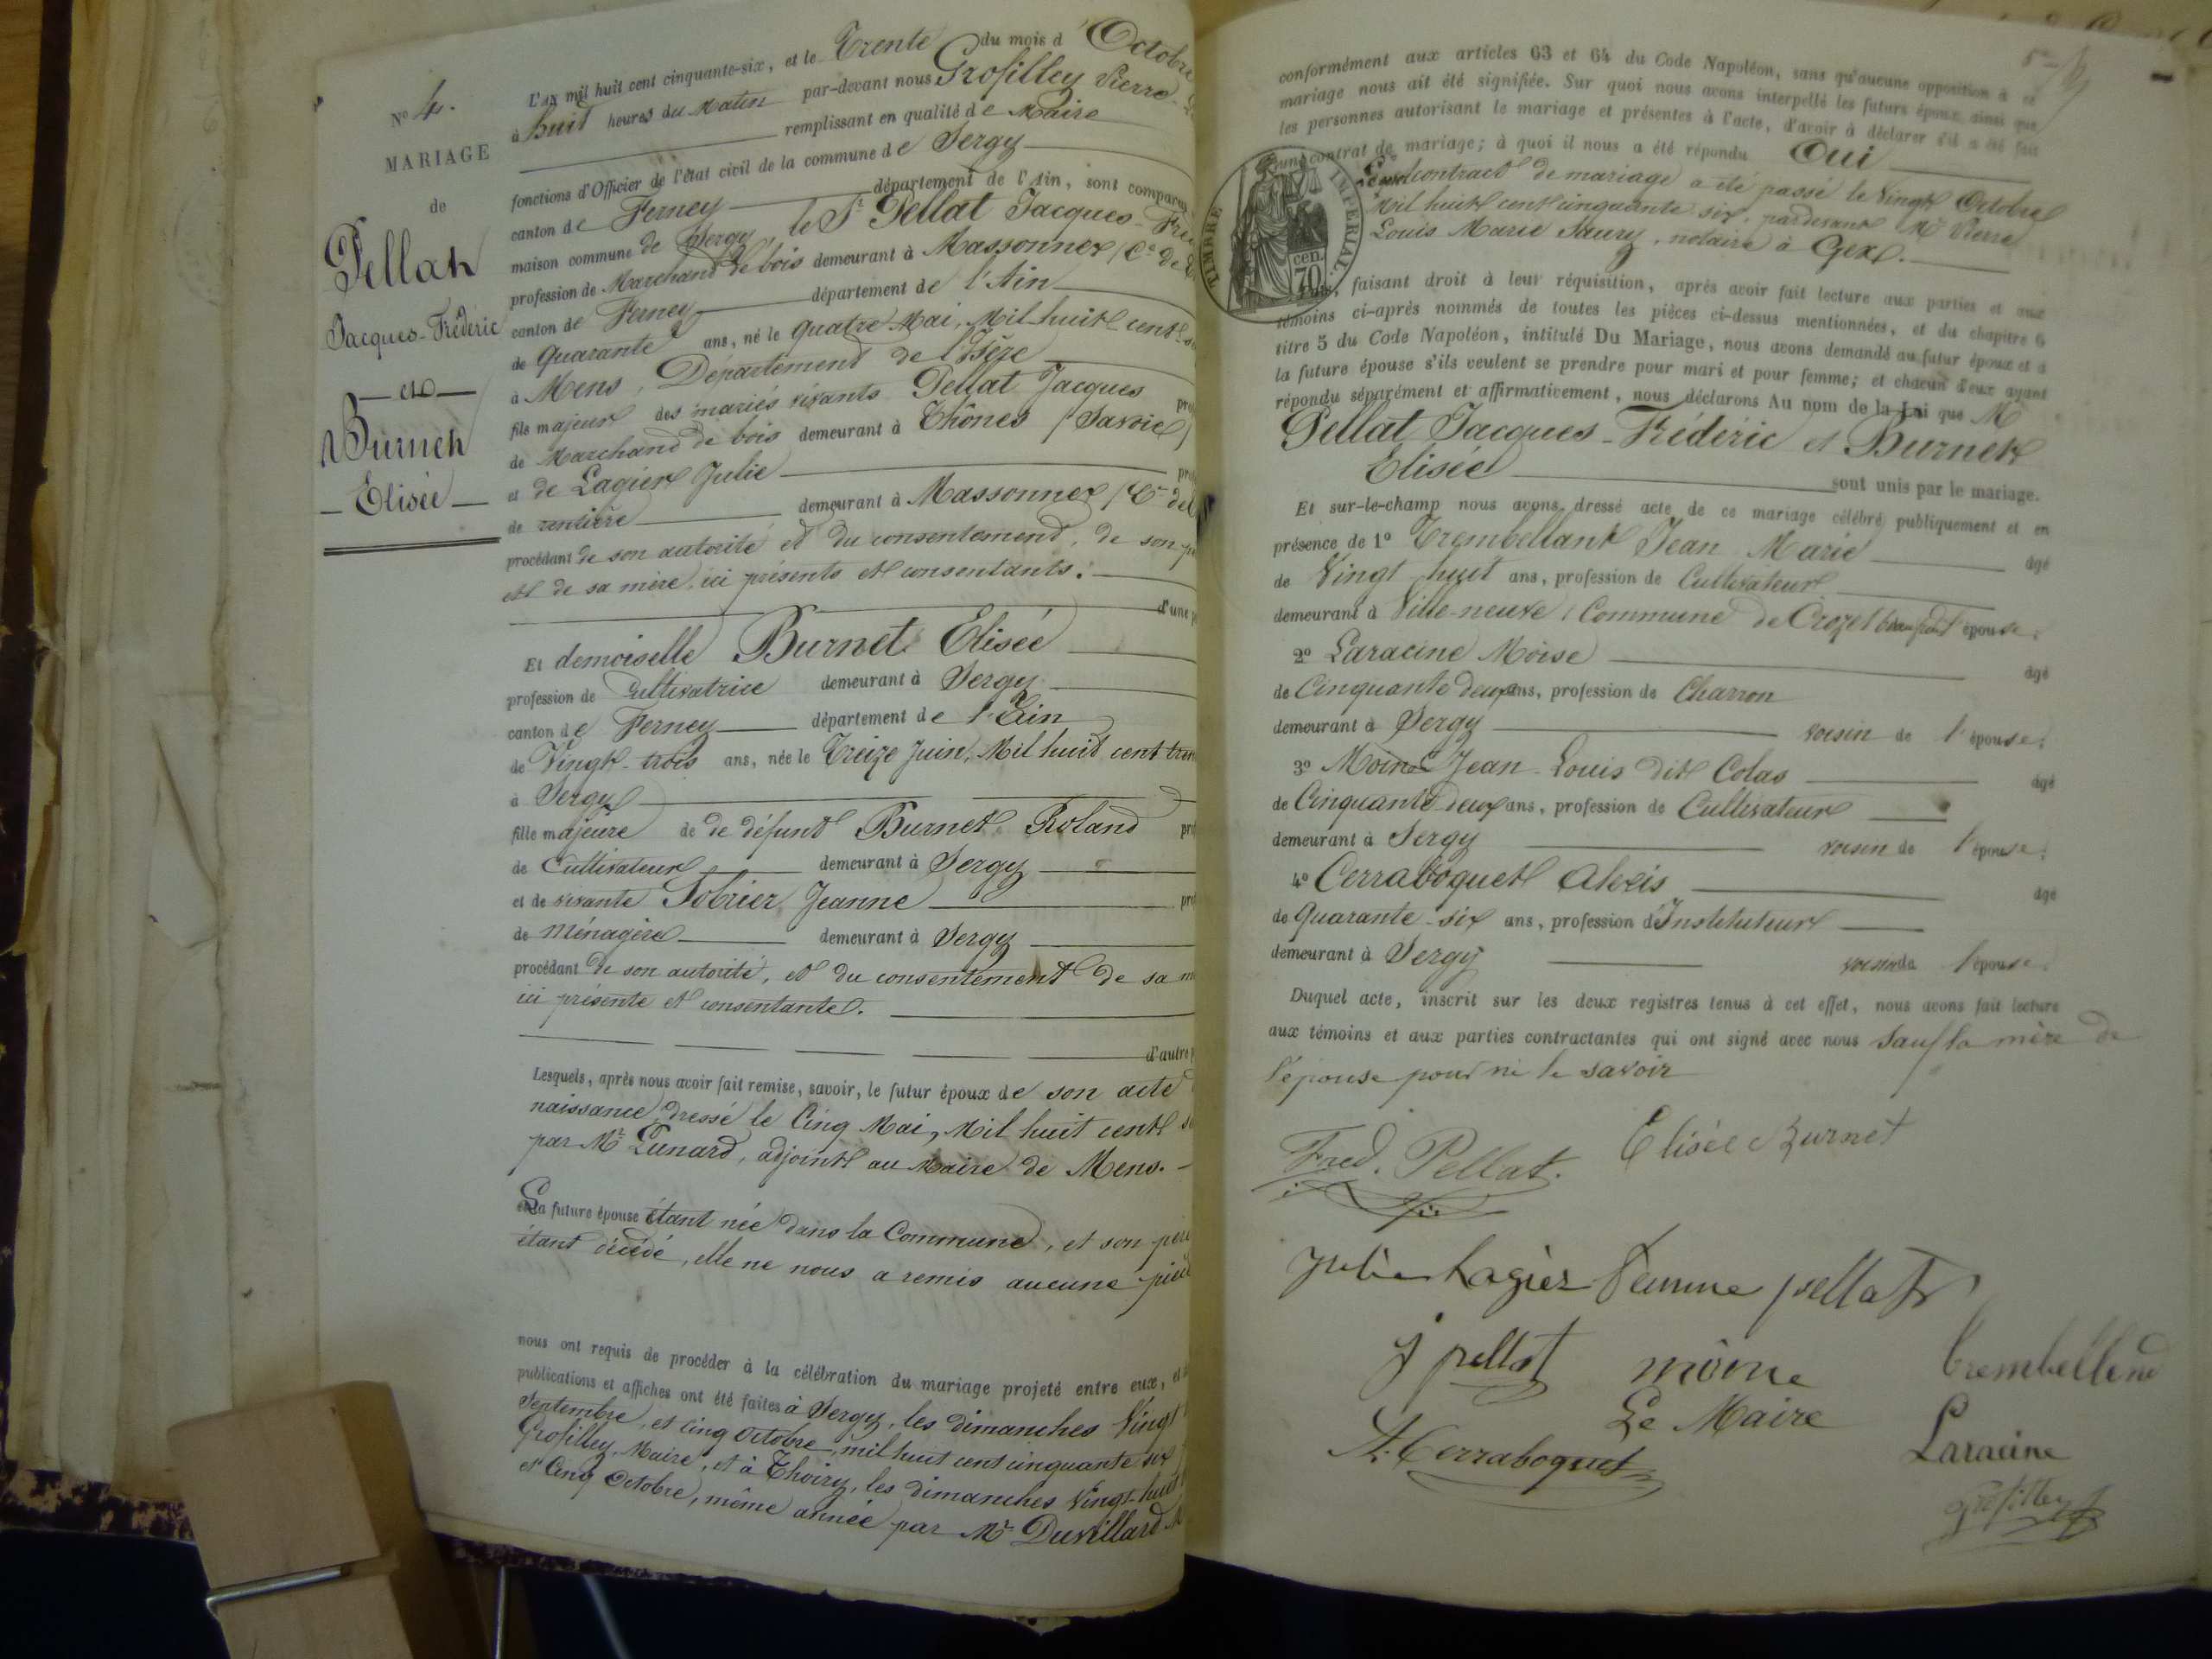 N° 4.
MARIAGE
de
Pellat
Jacques-Frédéric
et
Burnet
Elisée
L'an mil huit cent cinquante-six, et le Trente du mois d'Octobre
à huit heures du Matin par-devant nous Grosilley Pierre
remplissant en qualité de Maire
fonctions d'Officier de l'état civil de la commune de Sergy
canton de Ferney département de l'Ain, sont comparus
maison commune de Sergy, le Sr Pellat Jacques-Fré
profession de Marchand de bois demeurant à Massonnex (Cne de
canton de Ferney département de l'Ain
de Quarante ans, né le quatre Mai, Mil huit cent
à Mens, Département de l'Isère
fils majeur des mariés vivants Pellat Jacques
de Marchand de bois demeurant à Thônes (Savoie)
et de Lagier Julie
de rentière demeurant à Massonnex (Cne de
procédant de son autorité et du consentement, de son
et de sa mère, ici présents et consentants.
d'une
Et demoiselle Burnet Elisée
profession de Cultivatrice demeurant à Sergy
canton de Ferney département de l'Ain
de Vingt-trois ans, née le Treize Juin, Mil huit cent
à Sergy
fille majeure de de défunt Burnet Roland
de Cultivateur demeurant à Sergy
et de vivante Sobrier Jeanne
de Ménagère demeurant à Sergy
procédant de son autorité, et du consentement de sa
ici présente et consentante.
d'autre
Lesquels, après nous avoir fait remise, savoir, le futur époux de son acte
naissance, dressé le Cinq Mai, Mil huit cent
par Mr Lunard, adjoint au Maire de Mens.
La future épouse étant née dans la Commune, et son père
étant décédé, elle ne nous a remis aucune
nous ont requis de procéder à la célébration du mariage projeté entre eux,
publications et affiches ont été faites à Sergy, les dimanches Vingt
Septembre, et cinq octobre, mil huit cent cinquante six
Grosilley, Maire, et à Thoiry, les dimanches Vingt-huit
et Cinq Octobre, même année par Mr Duvillard
conformément aux articles 63 et 64 du Code Napoléon, sans qu'aucune opposition à ce
mariage nous ait été signifiée. Sur quoi nous avons interpellé les futurs époux, ainsi que
les personnes autorisant le mariage et présentes à l'acte, d'avoir à déclarer s'il a été fait
un contrat de mariage; à quoi il nous a été répondu Oui
Le contract de mariage a été passé le Vingt Octobre
Mil huit cent cinquante six, pardevant Me Pierre
Louis Marie Saury, notaire à Gex.
TIMBRE IMPERIAL
70 cen
faisant droit à leur réquisition, après avoir fait lecture aux parties et aux
témoins ci-après nommés de toutes les pièces ci-dessus mentionnées, et du chapitre 6
titre 5 du Code Napoléon, intitulé Du Mariage, nous avons demandé au futur époux et à
la future épouse s'ils veulent se prendre pour mari et pour femme; et chacun d'eux ayant
répondu séparément et affirmativement, nous déclarons Au nom de la Loi que M
Pellat Jacques-Frédéric et Burnet
Elisée
sont unis par le mariage.
Et sur-le-champ nous avons dressé acte de ce mariage célébré publiquement et en
présence de 1° Trembellant Jean Marie âgé
de Vingt huit ans, profession de Cultivateur
demeurant à Ville-neuve, Commune de Crozet épouse;
2° Laracine Moïse âgé
de Cinquante deux ans, profession de Charron
demeurant à Sergy voisin de l'épouse;
3° Moine Jean-Louis dit Colas âgé
de Cinquante-deux ans, profession de Cultivateur
demeurant à Sergy voisin de l'épouse;
4° Cerraboquet Alexis âgé
de Quarante-six ans, profession d'Instituteur
demeurant à Sergy voisin de l'épouse.
Duquel acte, inscrit sur les deux registres tenus à cet effet, nous avons fait lecture
aux témoins et aux parties contractantes qui ont signé avec nous sauf la mère de
l'épouse pour ne le savoir
Fred. Pellat.
Elisée Burnet
Julie Lagier femme pellat
J pellat
moine
trembellend
Le Maire
A. Cerraboquet
Laracine
Grosilley